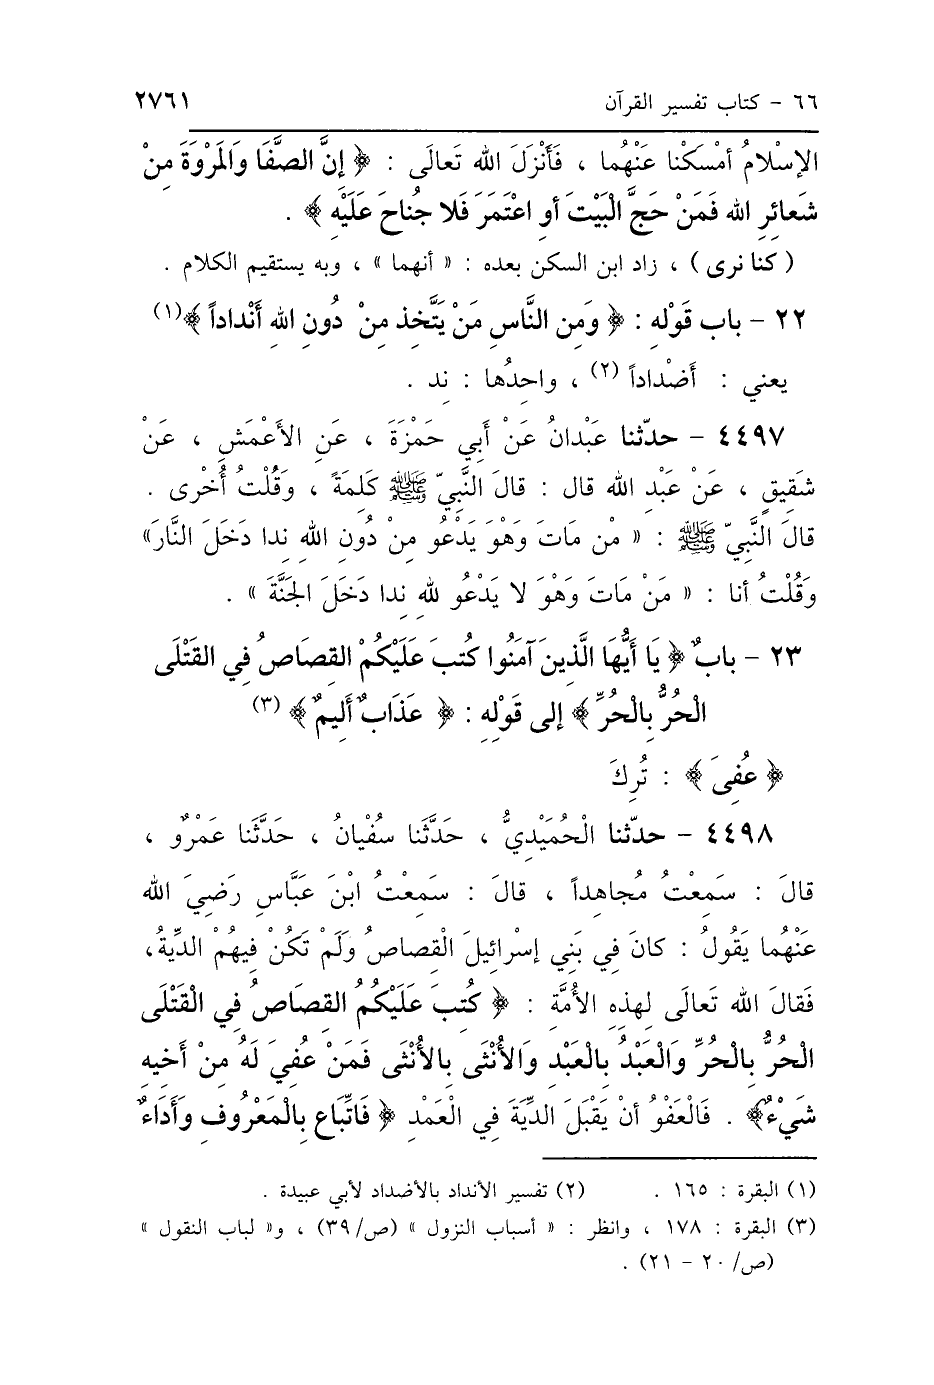 ٦٦ - كتاب تفسير القرآن ٢٧٦١
الإسْلامُ أمْسَكْنا عَنْهُما ، فَأَنْزَلَ الله تَعالَى : ﴿ إنَّ الصَّفَا وَالَمَرْوَةَ مِنْ
شَعائِرِ الله فَمَنْ حَجَّ الْبَيْتَ أو اعْتَمَرَ فَلا جُناحَ عَلَيْهِ ﴾ .
( كنا نرى ) ، زاد ابن السكن بعده : « أنهما » ، وبه يستقيم الكلام .
٢٢ - باب قَوْلِهِ : ﴿ وَمِن النَّاسِ مَنْ يَتَّخِذ مِنْ دُونِ اللهِ أَنْداداً ﴾(١)
يعني : أَضْداداً (٢) ، واحِدُها : نِد .
٤٤٩٧ - حدّثنا عَبْدانُ عَنْ أَبِي حَمْزَةَ ، عَنِ الأَعْمَشِ ، عَنْ
شَقِيقٍ ، عَنْ عَبْدِ الله قال : قالَ النَّبِيّ ﷺ كَلِمَةً ، وَقُلْتُ أُخْرى .
قالَ النَّبِيّ ﷺ : « مْن مَاتَ وَهْوَ يَدْعُو مِنْ دُونِ اللهِ ندا دَخَلَ النَّارَ»
وَقُلْتُ أنا : « مَنْ مَاتَ وَهْوَ لا يَدْعُو لله ندا دَخَلَ الجَنَّةَ » .
٢٣ - بابٌ ﴿ يَا أَيُّهَا الَّذِينَ آمَنُوا كُتِبَ عَلَيْكُمْ القِصَاصُ فِي القَتْلَى
الْحُرُّ بِالْحُرِّ ﴾ إلى قَوْلِهِ : ﴿ عَذَابٌ أَلِيمٌ ﴾ (٣)
﴿ عُفِىَ ﴾ : تُرِكَ
٤٤٩٨ - حدّثنا الْحُمَيْدِيُّ ، حَدَّثَنا سُفْيانُ ، حَدَّثَنا عَمْرٌو ،
قالَ : سَمِعْتُ مُجاهِداً ، قالَ : سَمِعْتُ ابْنَ عَبَّاسٍ رَضِيَ الله
عَنْهُما يَقُولُ : كانَ فِي بَنِي إسْرائِيلَ الْقِصاصُ وَلَمْ تَكُنْ فِيهُمْ الدِّيةُ،
فَقالَ الله تَعالَى لِهذِهِ الأُمَّةِ : ﴿ كُتِبَ عَلَيْكُمُ القِصَاصُ فِي الْقَتْلَى
الْحُرُّ بِالْحُرِّ وَالْعَبْدُ بِالْعَبْدِ وَالأُنْثَى بِالأُنْثَى فَمَنْ عُفِيَ لَهُ مِنْ أَخِيهِ
شَيْءٌ﴾ . فَالْعَفْوُ أنْ يَقْبَلَ الدِّيَةَ فِي الْعَمْدِ ﴿ فَاتِّبَاع بِالْمَعْرُوفِ وَأَدَاءٌ
(١) البقرة : ١٦٥ . (٢) تفسير الأنداد بالأضداد لأبي عبيدة .
(٣) البقرة : ١٧٨ ، وانظر : « أسباب النزول » (ص/٣٩) ، و« لباب النقول »
(ص/ ٢٠ - ٢١) .